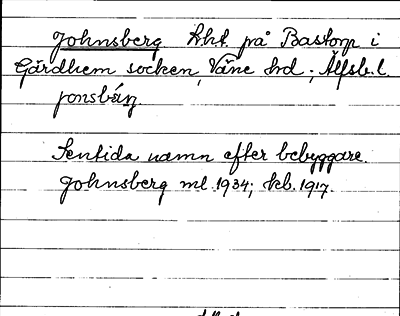 Johnsberg lht. på Bastorp i
Gärdhem socken, Väne hd; Älfsb. l.
jonsbárj.
Sentida namn efter bebyggare.
Johnsberg ml. 1934; kb. 1917.